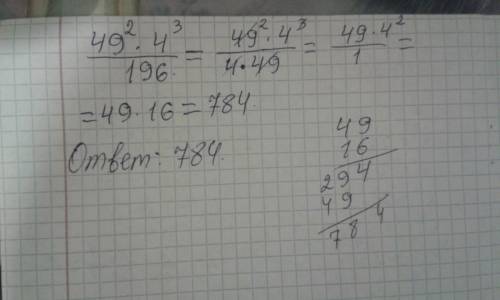 49²·4³/196 = 49²·4³/4·49 = 49·4²/1 =
= 49·16 = 784.
Ответ: 784.
49
16
294
49
784